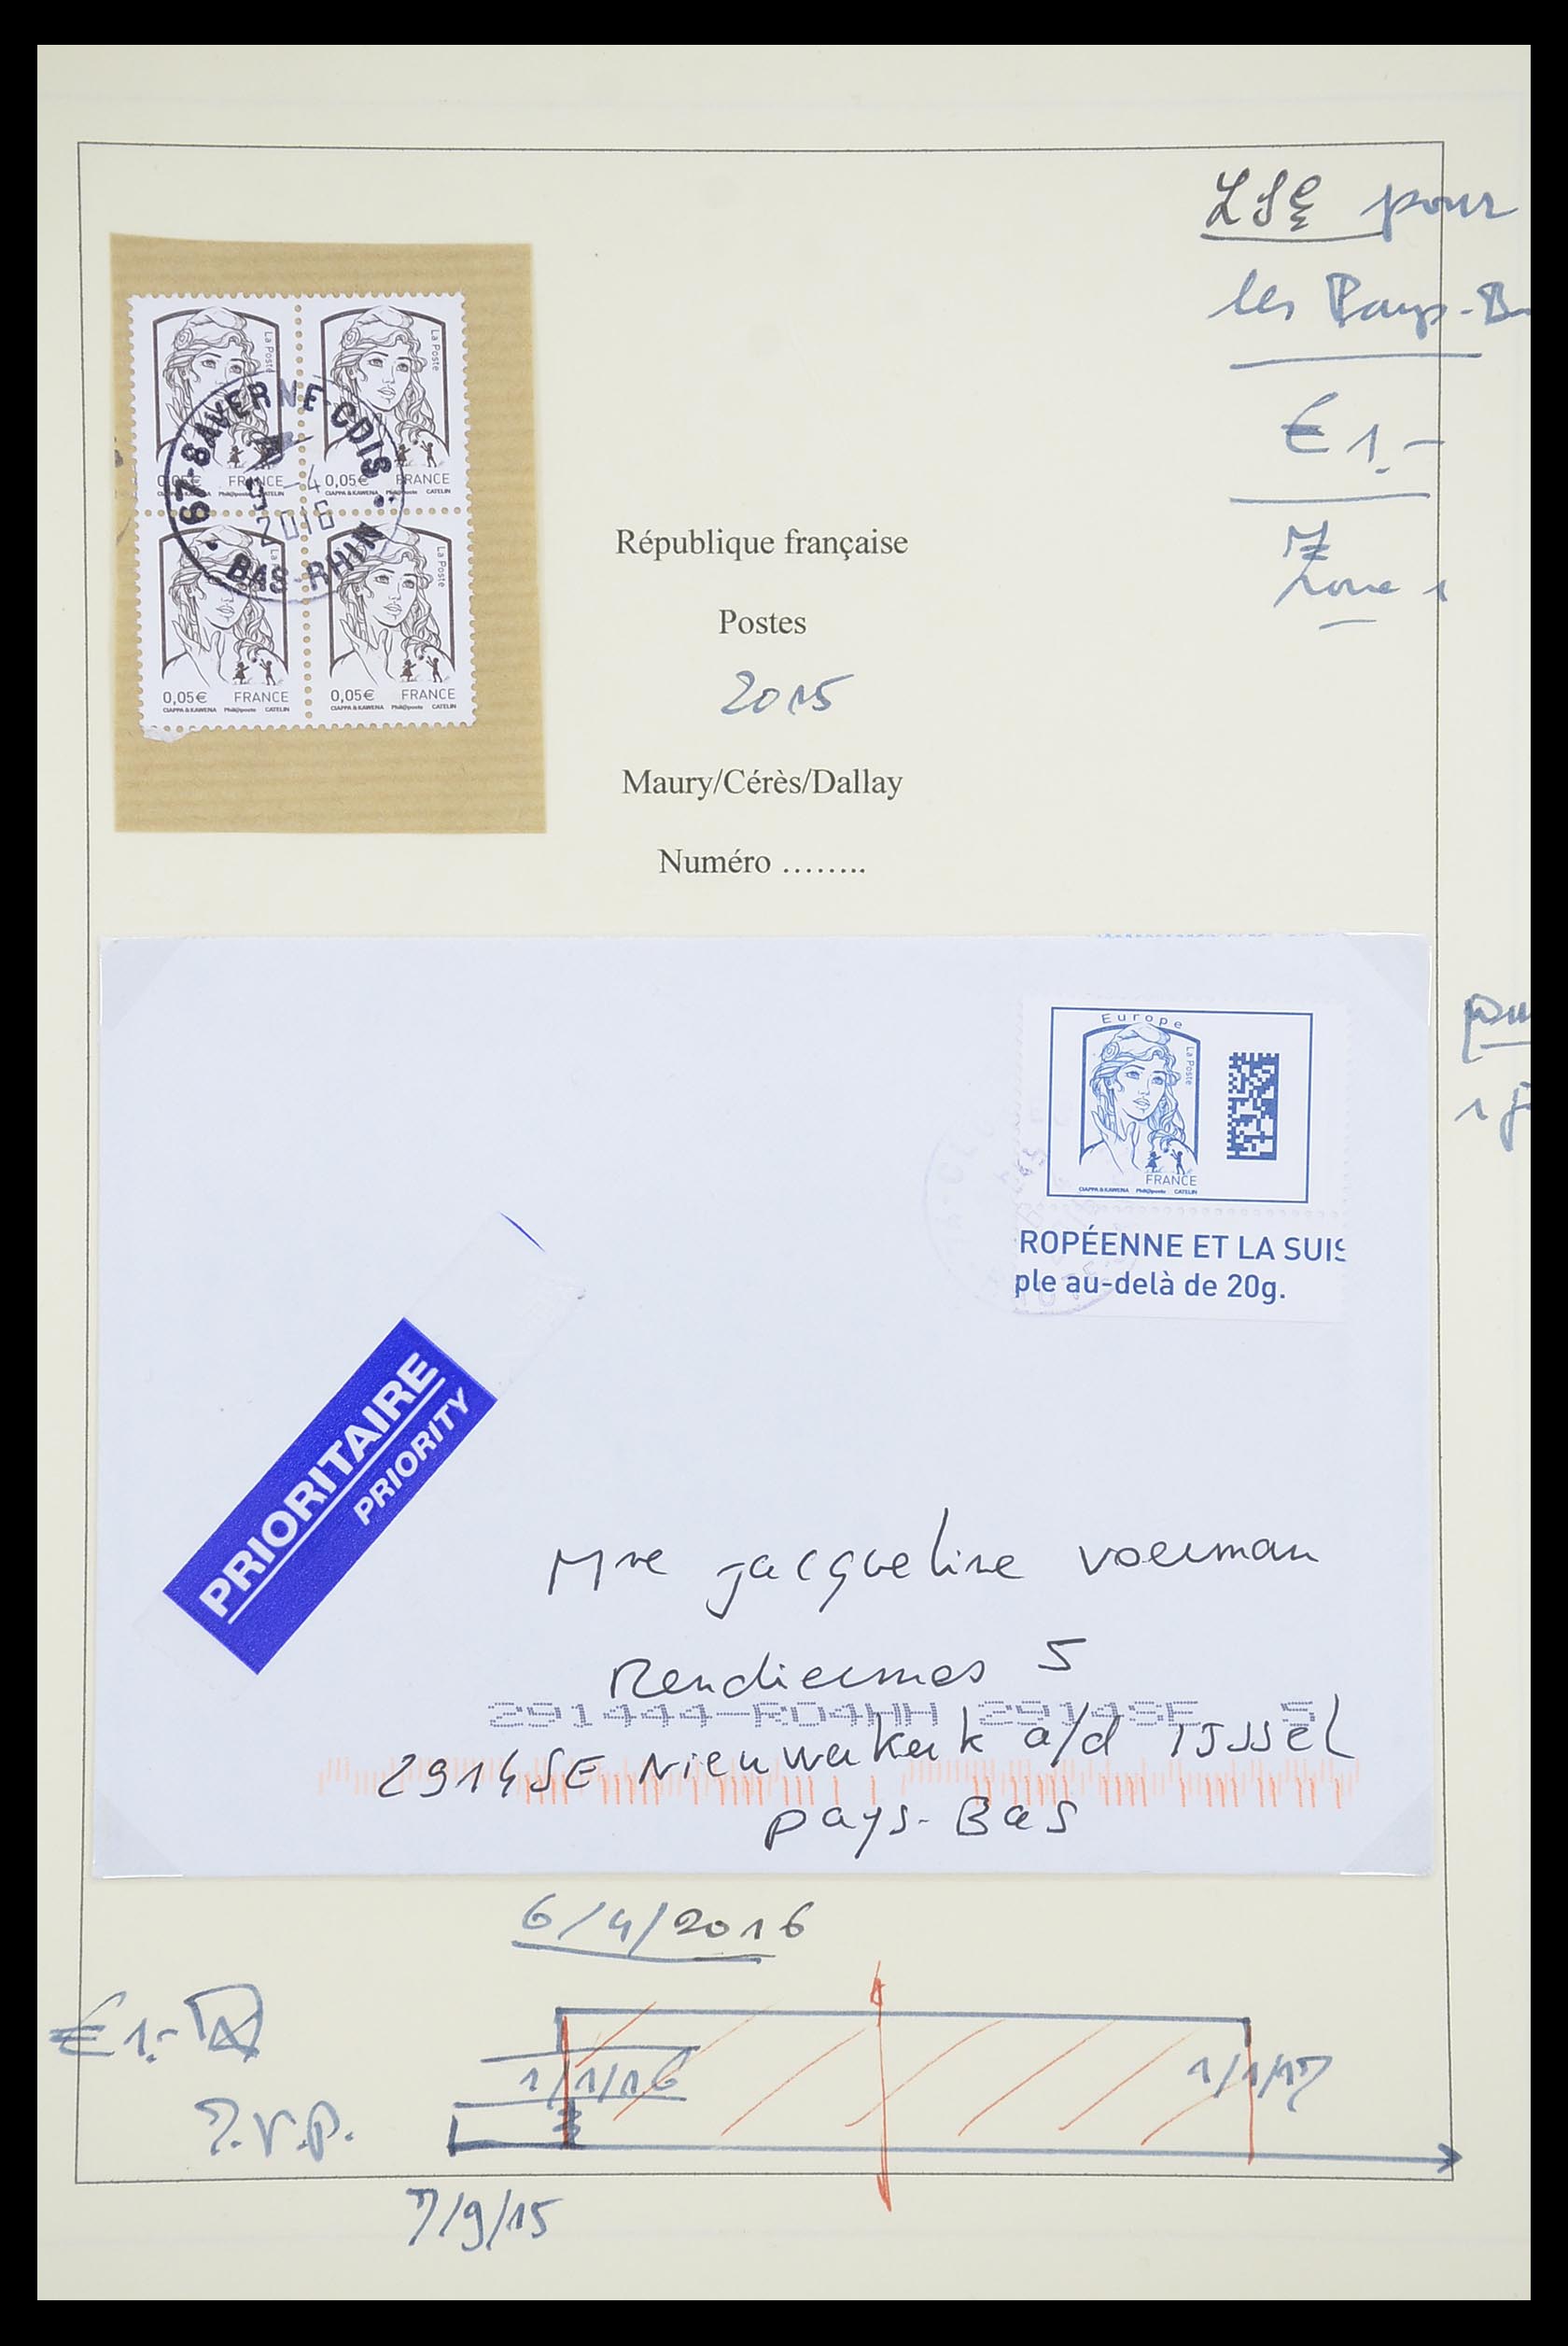 LSE pour
les Pays-B
€ 1.-
Zone 1
La Poste
La Poste
67-SAVERNE-CDIS
9-4
2016
BAS-RHIN
0,05€ FRANCE
CIAPPA & KAWENA Phil@poste CATELIN
0,05€ FRANCE
CIAPPA & KAWENA Phil@poste CATELIN
La Poste
La Poste
0,05€ FRANCE
CIAPPA & KAWENA Phil@poste CATELIN
0,05€ FRANCE
CIAPPA & KAWENA Phil@poste CATELIN
République française
Postes
2015
Maury/Cérès/Dallay
Numéro ........
Europe
La Poste
FRANCE
CIAPPA & KAWENA Phil@poste CATELIN
ROPÉENNE ET LA SUIS
ple au-delà de 20g.
PRIORITAIRE
PRIORITY
Mme jacqueline voerman
Rendiermos 5
291444-RO4HH 2914SE 5
2914SE Nieuwerkerk a/d IJssel
pays-Bas
6/4/2016
€ 1.-
1/1/16
1/1/17
T.V.P.
7/9/15